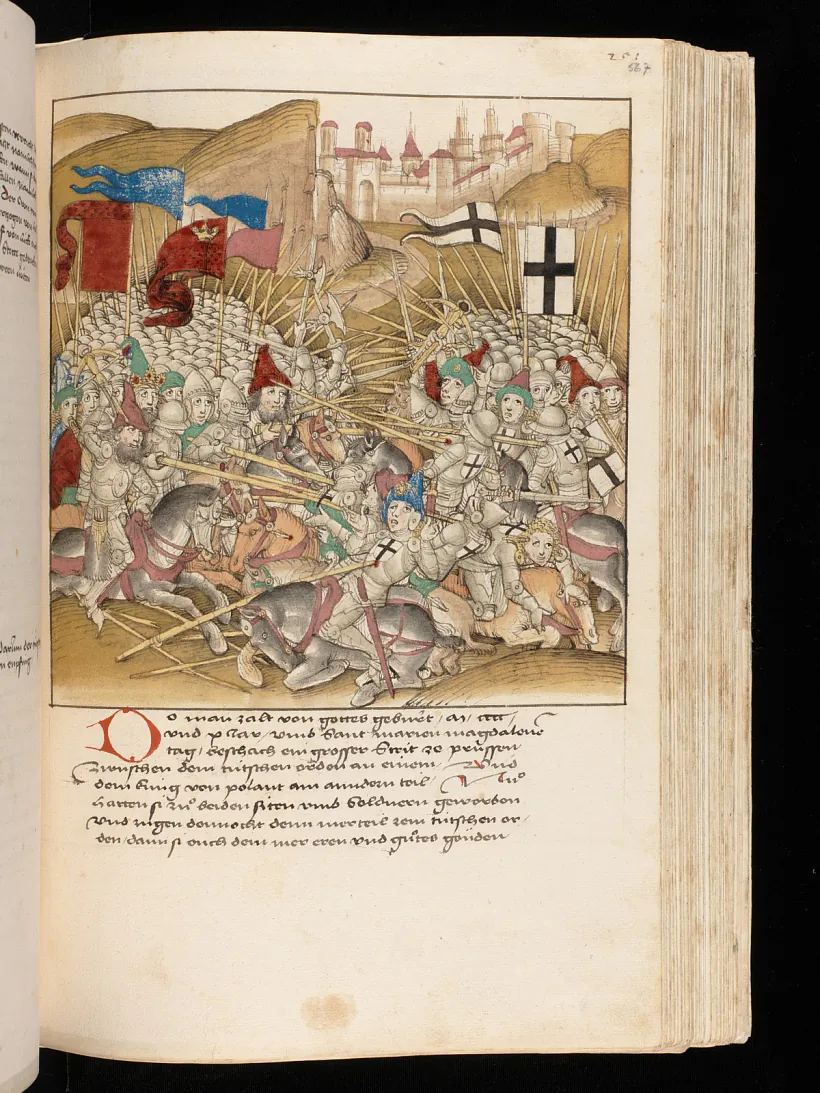 251
567
Do man zalt von gottes geburt / M / cccc /
und x Jar / umb Sant marien magdalene
tag / beschach ein grosser Streit ze prüssen
Zwuschen dem tütschen orden an einem / Und
dem king von polant am anndern teil / Nuͦ
hatten si zuͦ beiden siten umb Soldnern geworben
Und zugen dennocht denn merteil zem tütschen or
den / dann si ouch dem mer eren und guͦtes gonden